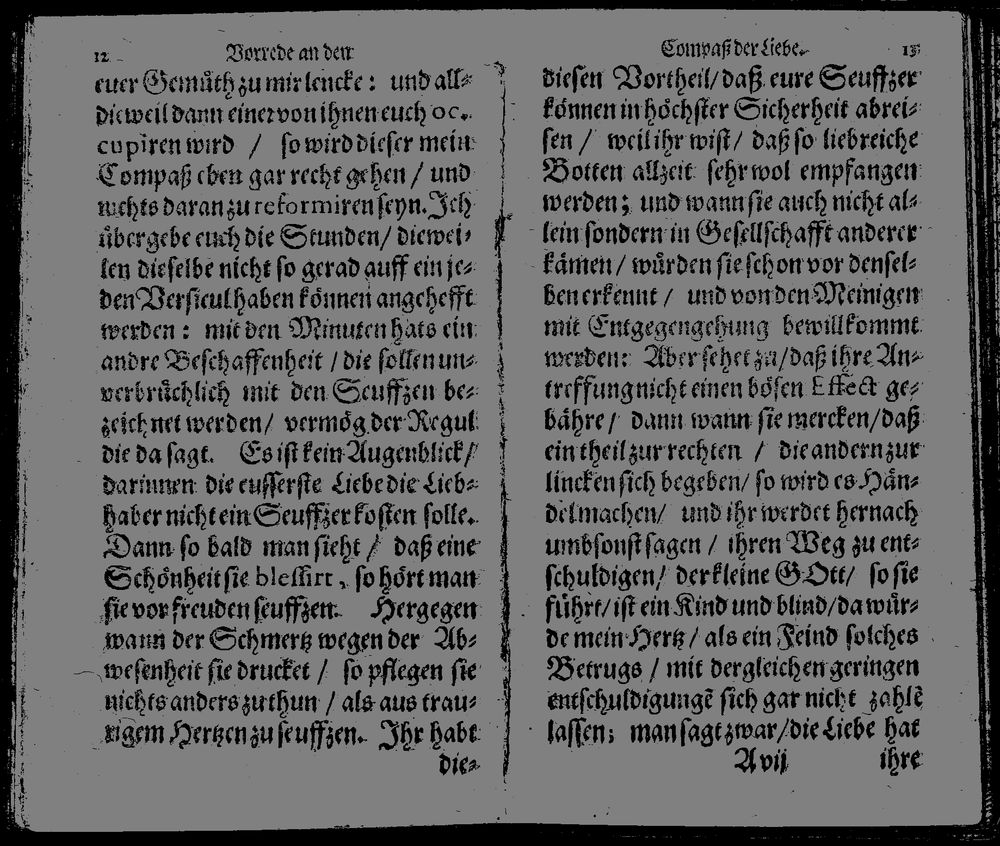 12 Vorrede an den
euer Gemüth zu mir lencke: und all-
dieweil dann einer von ihnen euch oc-
cupiren wird / so wird dieser mein
Compaß eben gar recht gehen / und
nichts daran zu reformiren seyn. Ich
übergebe euch die Stunden / diewei-
len dieselbe nicht so gerad auff ein je-
den Versicul haben können angehefft
werden: mit den Minuten hats ein
andre Beschaffenheit / die sollen un-
verbrüchlich mit den Seuffzen be-
zeichnet werden / vermög der Regul
die da sagt. Es ist kein Augenblick /
darinnen die eusserste Liebe die Lieb-
haber nicht ein Seuffzer kosten solle.
Dann so bald man sieht / daß eine
Schönheit sie blessirt, so hört man
sie vor freuden seuffzen. Hergegen
wann der Schmertz wegen der Ab-
wesenheit sie drucket / so pflegen sie
nichts anders zu thun / als aus trau-
rigem Hertzen zu seuffzen. Ihr habt
die-
Compaß der Liebe. 13
diesen Vortheil / daß eure Seuffzer
können in höchster Sicherheit abrei-
sen / weil ihr wist / daß so liebreiche
Botten allzeit sehr wol empfangen
werden; und wann sie auch nicht al-
lein sondern in Gesellschafft anderer
kämen / würden sie schon vor densel-
ben erkennt / und von den Meinigen
mit Entgegengehung bewillkommt
werden: Aber sehet zu / daß ihre An-
treffung nicht einen bösen Effect ge-
bähre / dann wann sie mercken / daß
ein theil zur rechten / die andern zur
lincken sich begeben / so wird es Hän-
del machen / und ihr werdet hernach
umbsonst sagen / ihren Weg zu ent-
schuldigen / der kleine GOtt / so sie
führt / ist ein Kind und blind / da wür-
de mein Hertz / als ein Feind solches
Betrugs / mit dergleichen geringen
entschuldigungē sich gar nicht zahlē
lassen; man sagt zwar / die Liebe hat
A vij ihre